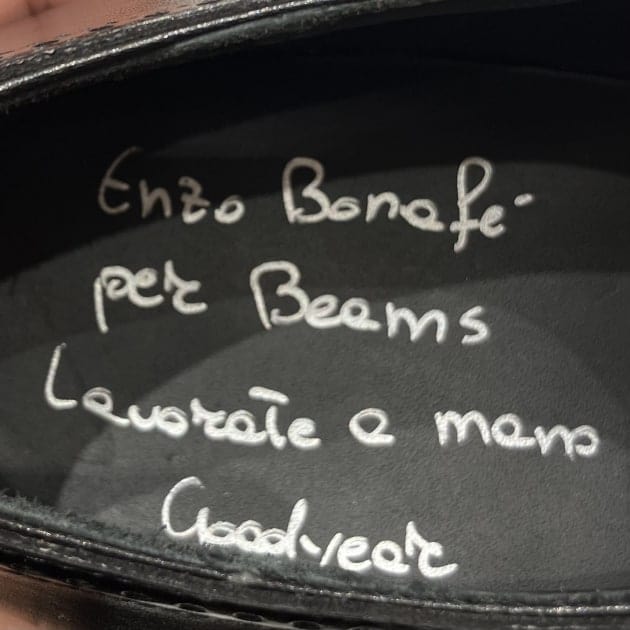 Enzo Bonafè
per Beams
Lavorate a mano
Goodyear